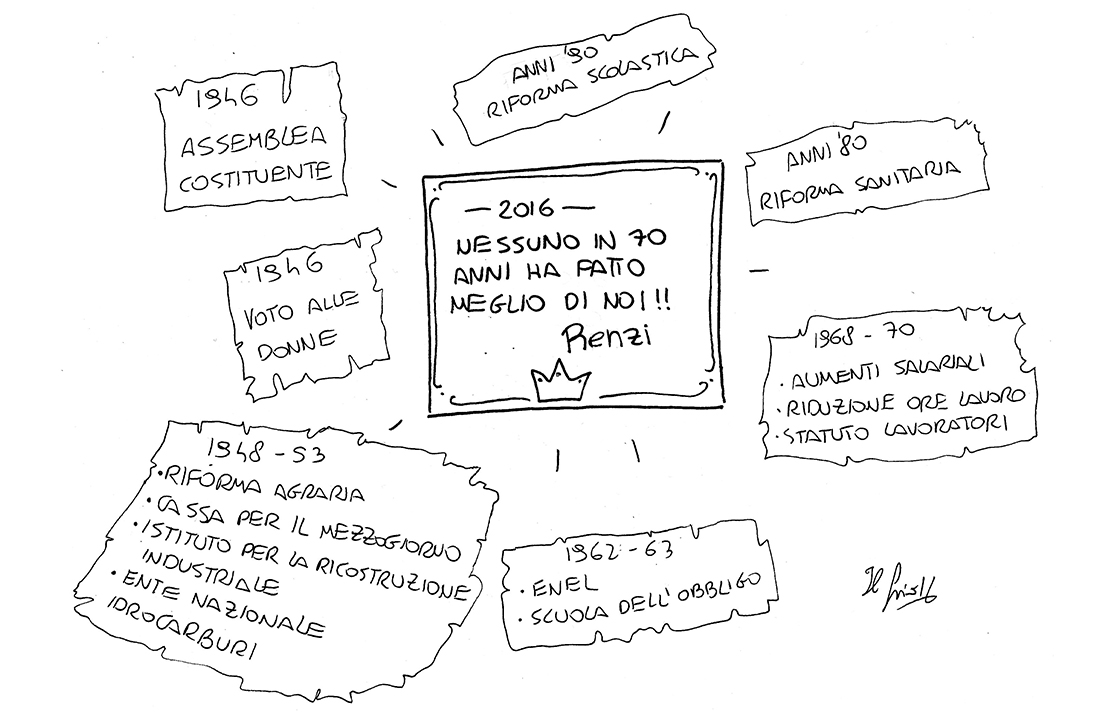 1946
ASSEMBLEA
COSTITUENTE
ANNI '90
RIFORMA SCOLASTICA
ANNI '80
RIFORMA SANITARIA
— 2016 —
NESSUNO IN 70
ANNI HA FATTO
MEGLIO DI NOI!!
Renzi
1946
VOTO ALLE
DONNE
1968 - 70
• AUMENTI SALARIALI
• RIDUZIONE ORE LAVORO
• STATUTO LAVORATORI
1948 - 53
• RIFORMA AGRARIA
• CASSA PER IL MEZZOGIORNO
• ISTITUTO PER LA RICOSTRUZIONE
INDUSTRIALE
• ENTE NAZIONALE
IDROCARBURI
1962 - 63
• ENEL
• SCUOLA DELL'OBBLIGO
Il